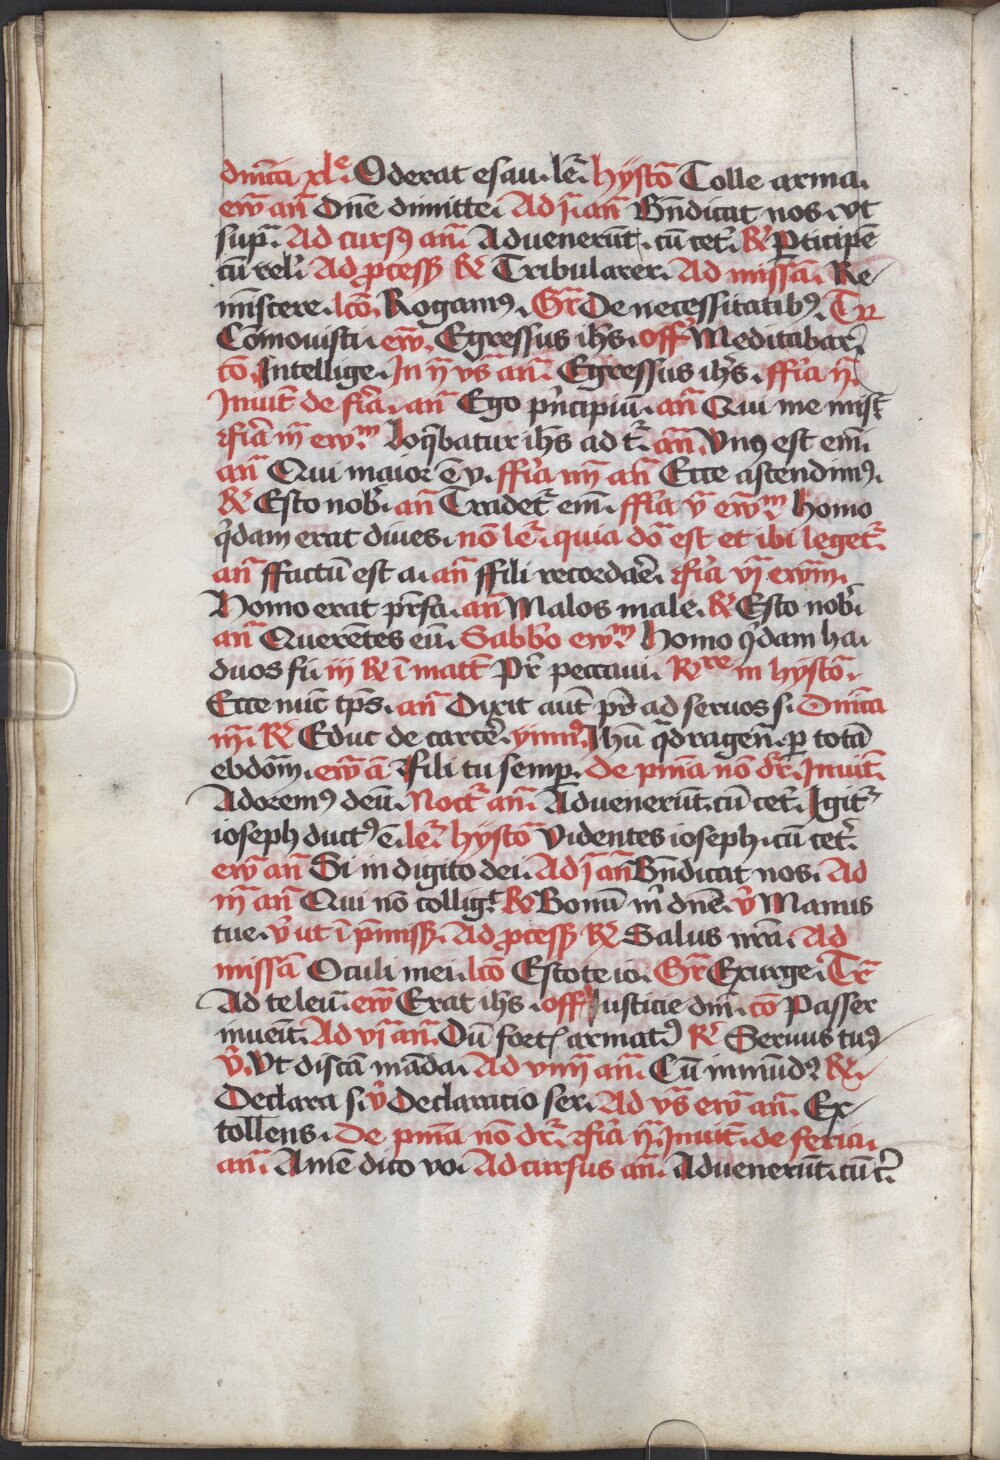 dn̄ica xle. Oderat esau. lc̄. hystō Tolle arma.
ew̄ an̄ Dn̄e dimitte. Ad j̄. an̄ Bn̄dicat nos. vt
supͣ. Ad cursꝰ an̄. Aduenerūt. cū cet̓. R̓ Pticipē
cū rel̓. Ad ꝓcess̄ R̓ Tribularer. Ad missā. Re
mīscere. lcō. Rogamꝰ. Gr̄ De necessitatibꝰ. Tr̄
Cōmouisti. ew̄. Egressus ih̄s. off̓ Meditabar.
cō. Intellige. In ij vs̄ an̄. Egressus ih̄s. ffīa ij.
Inuit̄ de fīa. an̄ Ego p̓ncipiū. an̄ Qui me mis̄t
ffīa iij ew̄.m Loq̄batur ih̄s ad t̓. an̄. Vnꝰ est em̄.
an̄ Qui maior ē v. ffīa iiij an̄ Ecce ascendimꝰ.
R̓ Esto nob̓. an̄ Tradet̓ em̄. ffīa v̄ ew̄m. homo
q̓dam erat diues. nō le͛. quia dō est et ibi leget̓.
an̄ ffactū est a. an̄ ffili recordar̄e. ffīa vj ew̄m.
Homo erat pr̄fa. an̄ Malos male. R̓ Esto nob̓.
an̄ Querētes eū. Sabb̓o ew̄.m Homo q̓dam ha.
duos fi. iij R̓ ī matt̄ Pr̄ peccaui. R̓re in hystō.
Ecce nūc tp̄s. an̄ Dixit aut̄ pr̄ ad seruos s. Dn̄ica
iij. R̓ Educ de carcer̄e. ymnꝰ. Jhū q̄dragen̄. ꝑ totā
ebdōm̄. ew̄ ā ffili tu semp̄. De pm̄a nō dr̄. Inuit̄.
Adoremꝰ deū. Noct̓ an̄. Aduenerūt. cū cet̓. Igit̓
ioseph duct̓ꝰ ē. le͛. hystō Videntes ioseph. cū cet̓.
ew̄ an̄ Si in digito dei. Ad j̄ an̄ Bn̄dicat nos. Ad
iij an̄ Qui nō collig̓t R̓ Bonū m̓ dn̄e. v̓ Manus
tue. v̓ ut ī p̄miss̄. Ad ꝓcess̄ R̓ Salus nr̄a. Ad
missā Oculi mei. lcō Estote io. Gr̄ Exurge. Tr̄
Ad te leui. ew̄ Erat ih̄s. off̓ Justicie dn̄i. cō Passer
inuenit̄. Ad vj an̄. Dū fort̓ armatꝰ R̓ Seruus tuꝰ
v̓. Vt discā māda. Ad viiij an̄. Cū inmūdꝰ R̓.
Declara s. v̓ Declaratio ser. Ad vs̄ ew̄ an̄. Ex
tollens. De pm̄a nō dr̄. ffīa ij. Inuit̄. de feria.
an̄. Amē dico vo. Ad cursus an̄. Aduenerūt. cū c̓